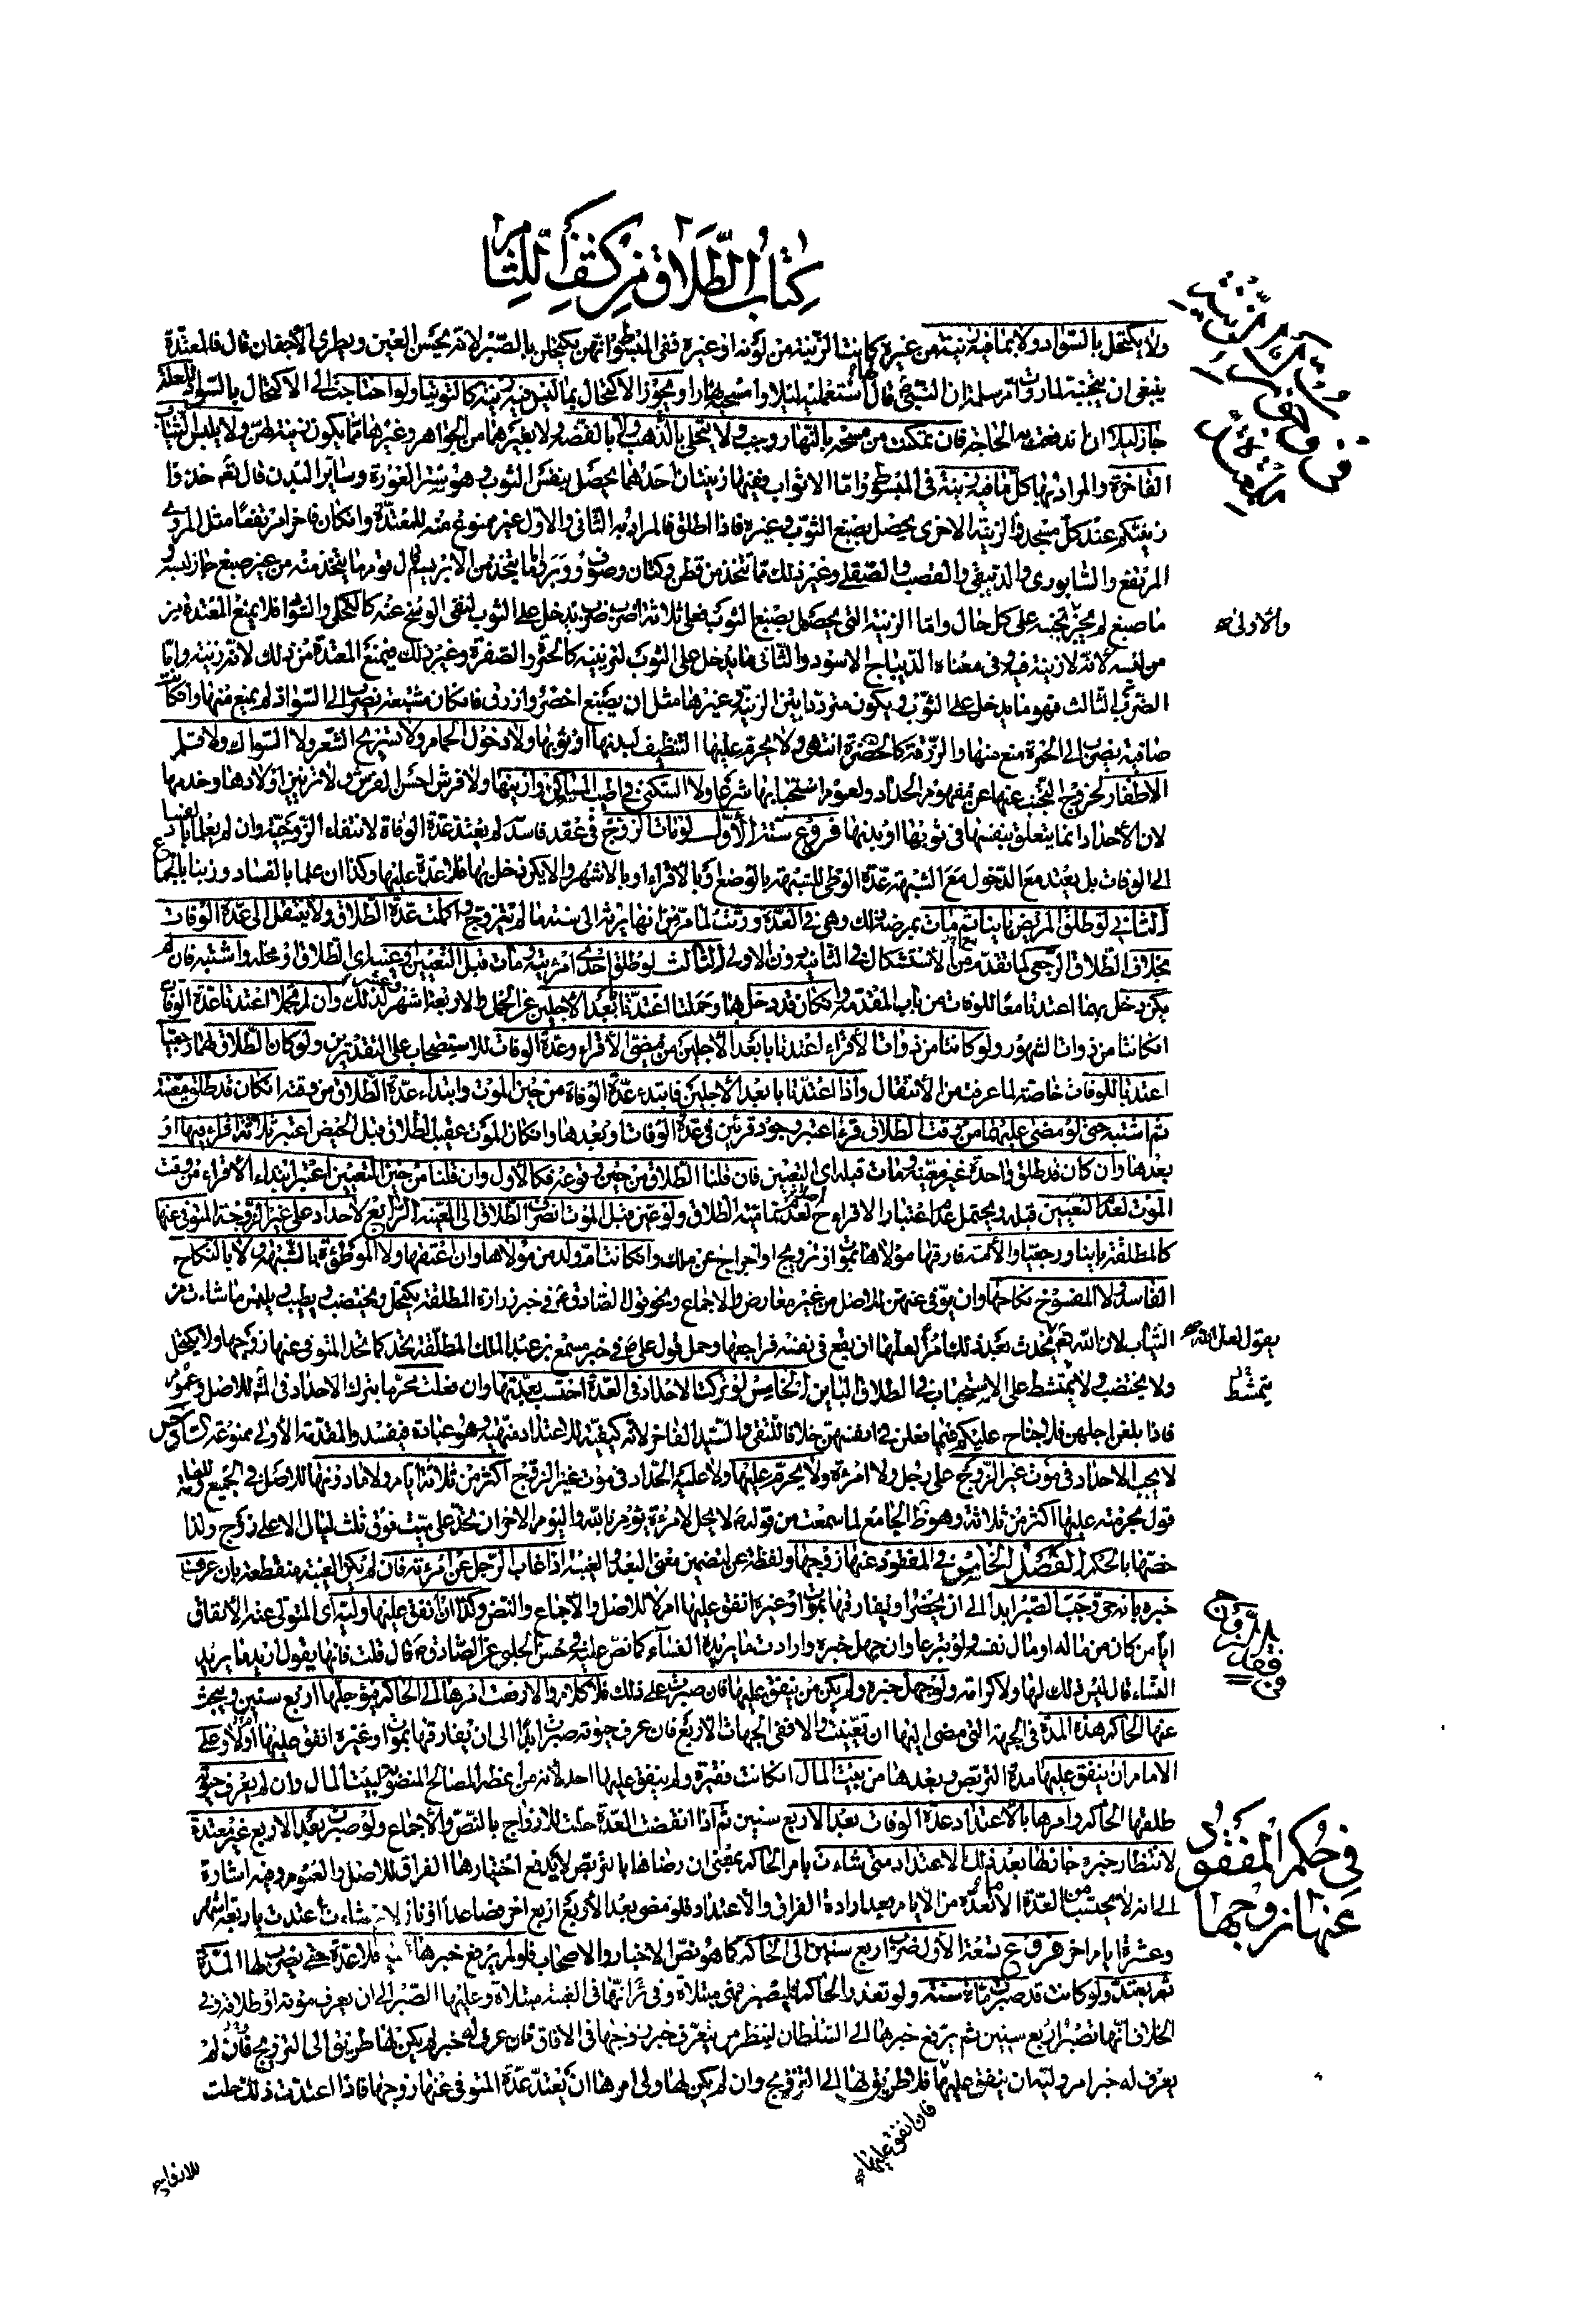 كتاب الطلاق من كشف اللثام
ولا يكتحل بالسواد ولا بما فيه زينة من غيره كما بينا الزينة من لونه او غيره ففي المبسوط انهن يكتحلن بالصبر لانه يحسن العين ويطري الاجفان قال فالمعتدة
ينبغي ان يتجنبه لما روت ام سلمة ان النبي ص قال استعمليه ليلا وامسحيه نهارا ويجوز الاكتحال بما ليس فيه زينة كالتوتيا ولو احتاجت الى الاكتحال بالسواد للعلة
جاز ليلا ان اندفعت به الحاجة فان تمكنت من مسحه بالنهار وجب ولا يتحلى بالذهب ولا بالفضة ولا بغيرهما من الجواهر وغيرها مما يكون زينة لهن ولا يلبس الثياب
الفاخرة والمراد بها كل ما فيه زينة في المبسوط واما الاثواب ففيها زينتان احدهما يحصل بنفس الثوب وهو ستر العورة وسائر البدن قال تعم خذوا
زينتكم عند كل مسجد والزينة الاخرى يحصل بصبغ الثوب وغيره فاذا اطلق فالمراد به الثاني والاول غير ممنوع منه للمعتدة وان كان فاخرا مرتفعا مثل المروي
المرتفع والشابوري والدبيقي والقصب والصقلي وغير ذلك مما يتخذ من قطن وكتان وصوف ووبر واما يتخذ من الابريسم قال قوم ما يتخذ منه من غير صبغ جاز لبسه و
ما صبغ لم يجز تجنبه على كل حال واما الزينة التي يحصل بصبغ الثوب فعلى ثلاثة اضرب ضرب يدخل على الثوب لنفي الوسخ عنه كالكحلي والسواد فلا يمنع المعتدة من
والاولى
من لبسه لانه لا زينة فيه وفي معناه الديباج الاسود والثاني ما يدخل على الثوب لتزيينه كالحمرة والصفرة وغير ذلك فيمنع المعتدة من ذلك لانه زينة واما
الضرب الثالث فهو ما يدخل على الثوب ويكون مترددا بين الزينة وغيرها مثل ان يصبغ اخضر وازرق فان كان مشبعة يضرب الى السواد لم يمنع منها وان كانت
صافية يضرب الى الحمرة منع منها والزرقة كالخضرة انتهى ولا يحرم عليها التنظيف لبدنها او ثوبها ولا دخول الحمام ولا تسريح الشعر ولا السواك ولا قلم
الاظفار لخروج التجنب عنها عن مفهوم الحداد ولعموم استحبابها شرعا ولا السكنى في اطيب المساكن وازينها ولا فرش احسن الفرش ولا تزيين اولادها وخدمها
لان الاحداد انما يتعلق بنفسها في ثوبها او بدنها فروع ستة الاول لو مات الزوج في عقد فاسد لم يعتد عدة الوفاة لانتفاء الزوجية وان لم يعلما بالفساد
الى الوفات بل يعتد مع الدخول مع الشبهة عدة الوطي للشبهة بالوضع او بالاقراء او بالاشهر والا يكن دخل بها فلا عدة عليها وكذا ان علما بالفساد وزنيا بالجماع
الثاني لو طلق المريض باينا ثم مات بمرضه ذلك وهي في العدة ورثت لما مر من انها يرثه الى سنة ما لم يتزوج واكملت عدة الطلاق ولا ينتقل الى عدة الوفات
بخلاف الطلاق الرجعي لما تقدم من الاستشكال في الثانية دون الاولى الثالث لو طلق احدى امرئتيه ومات قبل التعيين او عينها في الطلاق او محله واشتبه فان لم
يكن دخل بهما اعتدتا معا للوفات من باب المقدمة وان كان قد دخل بهما وحملتا اعتدتا بابعد الاجلين من الحمل والاربعة اشهر وعشر لذلك وان لم تحملا اعتدتا عدة الوفات
ان كانتا من ذوات الشهور ولو كانتا من ذوات الاقراء اعتدتا بابعد الاجلين من مضي الاقراء وعدة الوفات للاستصحاب على التقديرين ولو كان الطلاق لهما رجعيا
اعتدتا للوفات خاصة لما عرفت من الانتقال واذا اعتدتا بابعد الاجلين فابتداء عدة الوفاة من حين الموت وابتداء عدة الطلاق من وقته ان كان قد طلق معينة
ثم اشتبه حتى لو مضى عليهما من وقت الطلاق قرء اعتبر وجود قرئين في عدة الوفات او بعدها وان كان الموت عقيب الطلاق قبل الحيض اعتبر ثلاثة اقراء فيها او
بعدها وان كان قد طلق واحدة غير معينة ومات قبله اى التعيين فان قلنا الطلاق من حين وقوعه فكالاول وان قلنا من حين التعيين اعتبر ابتداء الاقراء من وقت
الموت لعدم التعيين قبله ويحتمل عدم اعتبار الاقراء ح لعدم تمامية الطلاق ولو عين قبل الموت انصرف الطلاق الى المعينة الرابع لا حداد على غير الزوجة المتوفى عنها
كالمطلقة باينا ورجعيا والامة فارقها مولاها بموت او تزويج او اخراج عن ملك وان كانت ام ولد من مولاها وان اعتقها ولا الموطوءة بالشبهة ولا بالنكاح
الفاسد ولا المفسوخ نكاحها وان توفى عنهن للاصل من غير معارض والاجماع ونحو قول الصادق ع في خبر زرارة المطلقة يكتحل ويختضب ويطيب ويلبس ما شاءت من
الثياب لان الله عم يحدث بعد ذلك امرا لعلها ان يقع في نفسه فراجعها وحمل قول علي ع في خبر مسمع بن عبد الملك المطلقة يحد كما تحد المتوفى عنها زوجها ولا يكتحل
يقول لعل الله
ولا يختضب ولا يمتشط على الاستحباب في الطلاق الباين الخامس لو تركت الاحداد في العدة احتسب بعدتها وان فعلت محرما بترك الاحداد في المدة للاصل وعموم
يتمشط
فاذا بلغن اجلهن فلا جناح عليكم فيما فعلن في انفسهن خلافا للتقي والسيد الفاخر لانه كيفية للاعتداد منهية وهو عبادة فيفسد والمقدمة الاولى ممنوعة السادس
لا يجب الاحداد في موت غير الزوج على رجل ولا امرئة ولا يحرم عليها ولا عليه الحداد في موت غير الزوج اكثر من ثلاثة ايام ولا ما دونها للاصل في الجميع وللعامة
قول بحرمته عليها اكثر من ثلاثة وهو ظ الجامع لما سمعت من قوله ص لا يحل لامرئة يؤمن بالله واليوم الاخر ان تحد على ميت فوق ثلث ليال الا على زوج ولذا
خصها بالحكم الفصل الخامس في المفقود عنها زوجها ولفظة عن لتضمين معنى البعد والغيبة اذا غاب الرجل عن امرئته فان لم يكن الغيبة منقطعة بان عرف
خبره بانه حي وجب الصبر ابدا الى ان يحضر او يفارقها بموت او غيره انفق عليها ام لا للاصل والاجماع والنص وكذا ان انفق عليها وليه اى المتولى عنه الانفاق
في فقد الزوج
ايا من كان من ماله او مال نفسه ولو تبرعا وان جهل خبره وارادت ما يريده النساء كما نص عليه في حسن الحلبي عن الصادق ع قال قلت فانها يقول اريد ما يريد
النساء قال ليس ذلك لها ولا كرامة ولو جهل خبره ولم يكن من ينفق عليها فان صبرت على ذلك فلا كلام والا رفعت امرها الى الحاكم فيؤجلها اربع سنين ويبحث
عنها الحاكم هذه المدة في الجهة التي مضى اليها ان تعينت والا ففي الجهات الاربع فان عرف حيوته صبرت ابدا الى ان يفارقها بموت او غيره انفق عليها او لا وعلى
الامام ان ينفق عليها مدة التربص وبعدها من بيت المال ان كانت فقيرة ولم ينفق عليها احد لانه من اعظم المصالح المنصوب لبيت المال وان لم يعرف حيوته
طلقها الحاكم وامرها بالاعتداد عدة الوفات بعد الاربع سنين ثم اذا انقضت العدة حلت للازواج بالنص والاجماع ولو صبرت بعد الاربع غير معتدة
في حكم المفقود
عنها زوجها
لانتظار خبره جاز لها بعد ذلك الاعتداد متى شاءت بامر الحاكم بمعنى ان رضاها بالتربص لا يدفع اختيارها الفراق للاصل والعموم وفيه اشارة
الى انه لا يحتسب من العدة الا ما تعده من الايام بعد ارادة الفراق والاعتداد فلو مضى بعد الاربع اربع اخر فصاعدا او نازلا شاءت اعتدت باربعة اشهر
وعشرة ايام اخر فروع تسعة الاول ضرب اربع سنين الى الحاكم كما هو نص الاخبار والاصحاب فلو لم يرفع خبرها فلا عدة حتى يضرب لها المدة
ثم يعتد ولو كانت قد صبرت مأة سنة ولو تعذر الحاكم فليصبر فهي مبتلاة وفي انها في الفتنة مبتلاة وعليها الصبر الى ان يعرف موته او طلاقه وفي
الخلاف انها تصبر اربع سنين ثم يرفع خبرها الى السلطان لينظر من يتعرف خبر زوجها في الافاق فان عرف له خبر لم يكن لها طريق الى التزويج فان لم
يعرف له خبر امر وليه ان ينفق عليها فلا طريق لها الى التزويج وان لم يكن لها ولي امرها ان يعتد عدة المتوفى عنها زوجها فاذا اعتدت ذلك حلت
فان انفق عليها
للازواج